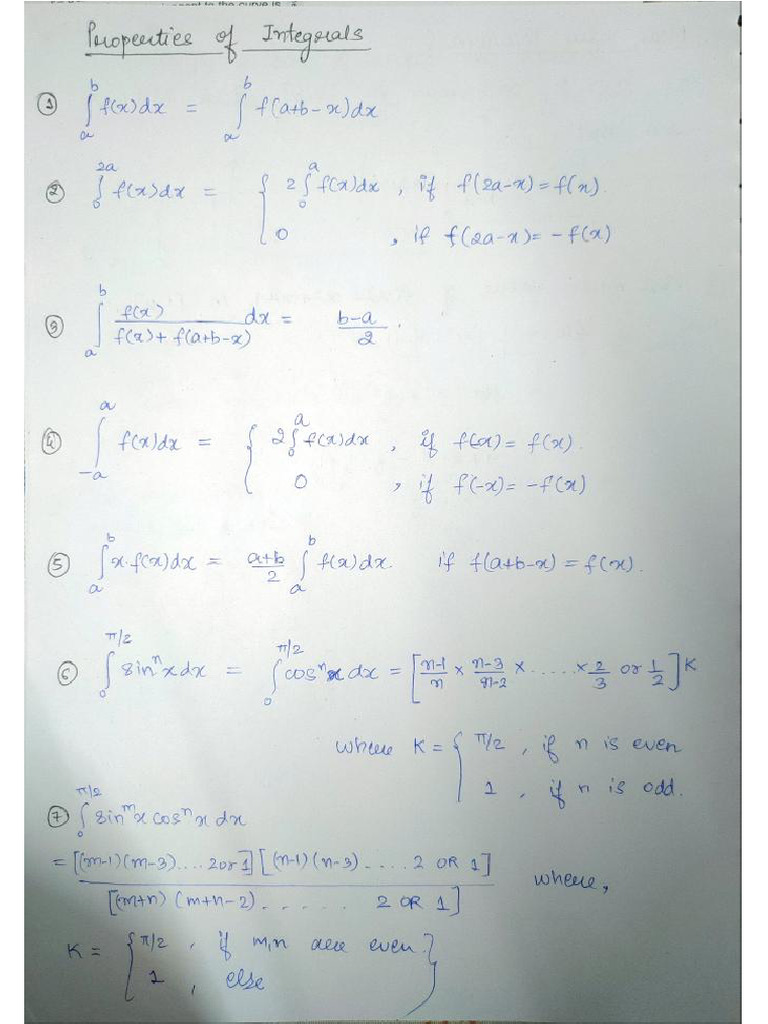 Properties of Integrals
① ∫_a^b f(x)dx = ∫_a^b f(a+b-x)dx
② ∫_0^{2a} f(x)dx = { 2∫_0^a f(x)dx , if f(2a-x)=f(x).
0 , if f(2a-x)= -f(x)
③ ∫_a^b f(x)/(f(x)+f(a+b-x)) dx = (b-a)/2 .
④ ∫_{-a}^a f(x)dx = { 2∫_0^a f(x)dx , if f(-x)= f(x).
0 , if f(-x)= -f(x)
⑤ ∫_a^b x·f(x)dx = (a+b)/2 ∫_a^b f(x)dx. if f(a+b-x) = f(x).
⑥ ∫_0^{π/2} sin^n x dx = ∫_0^{π/2} cos^n x dx = [(n-1)/n × (n-3)/(n-2) × ..... × 2/3 or 1/2] K
where K = { π/2 , if n is even
1 , if n is odd.
⑦ ∫_0^{π/2} sin^m x cos^n x dx
= [(m-1)(m-3)....2 or 1] [(n-1)(n-3).....2 OR 1] / [(m+n)(m+n-2)....... 2 OR 1] where,
K = { π/2 , if m,n are even. }
1 , else